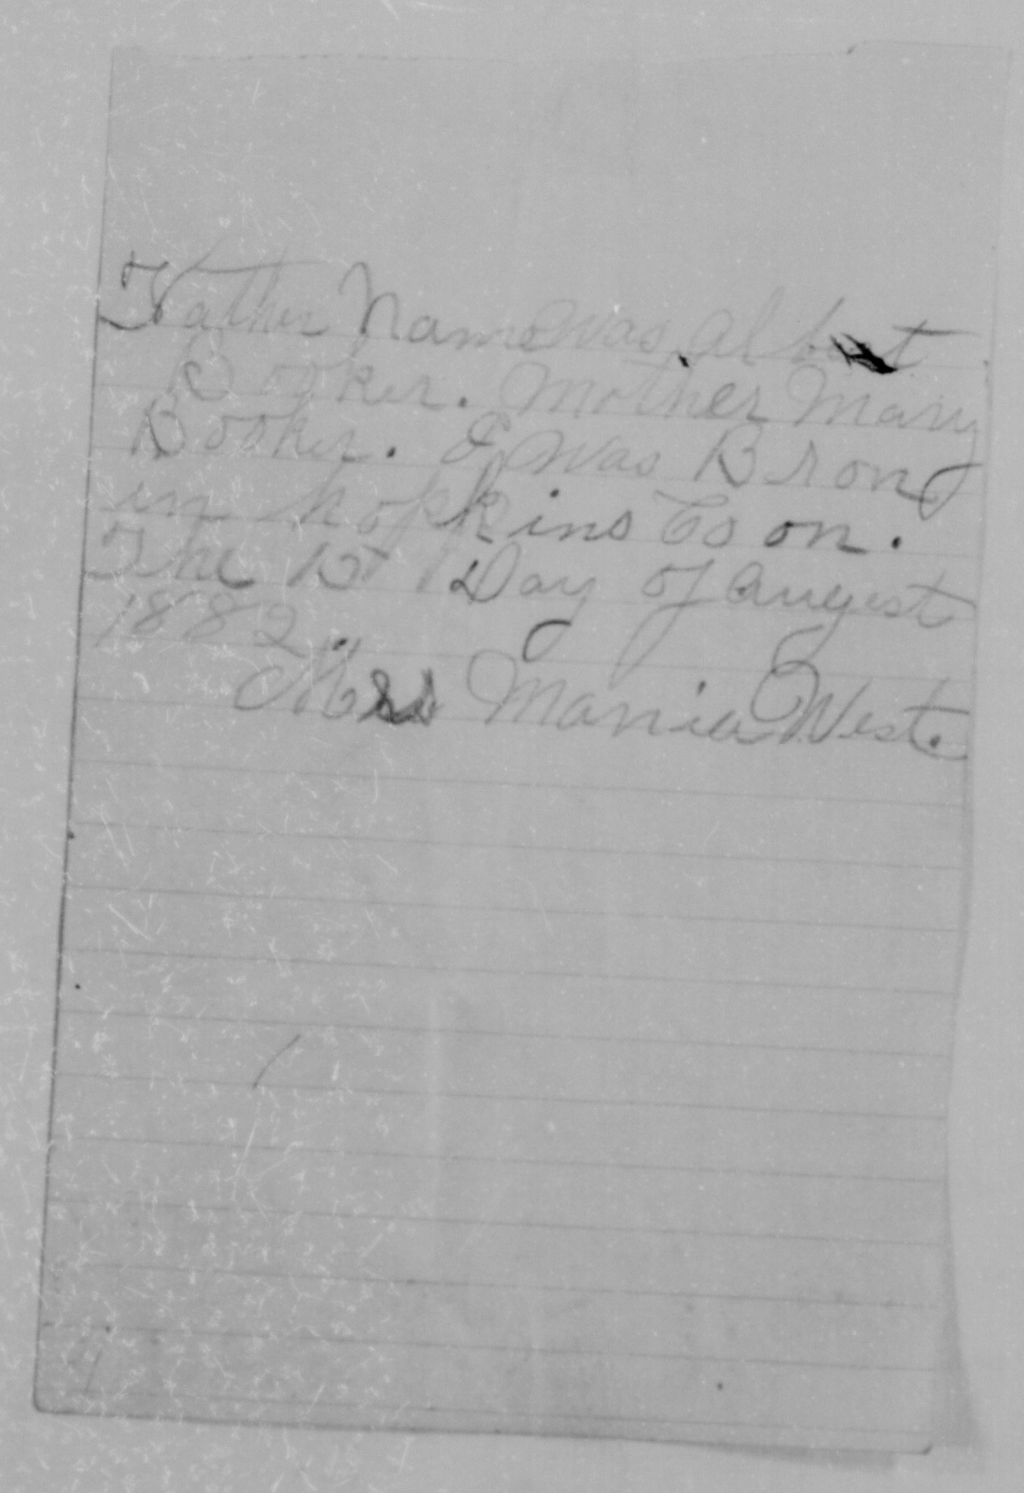 Father Name was Albert
Booker. Mother Mary
Booker. I was Bron
in hopkins Co on.
The 15 Day of Augest
1882.
Mrs Mania West.